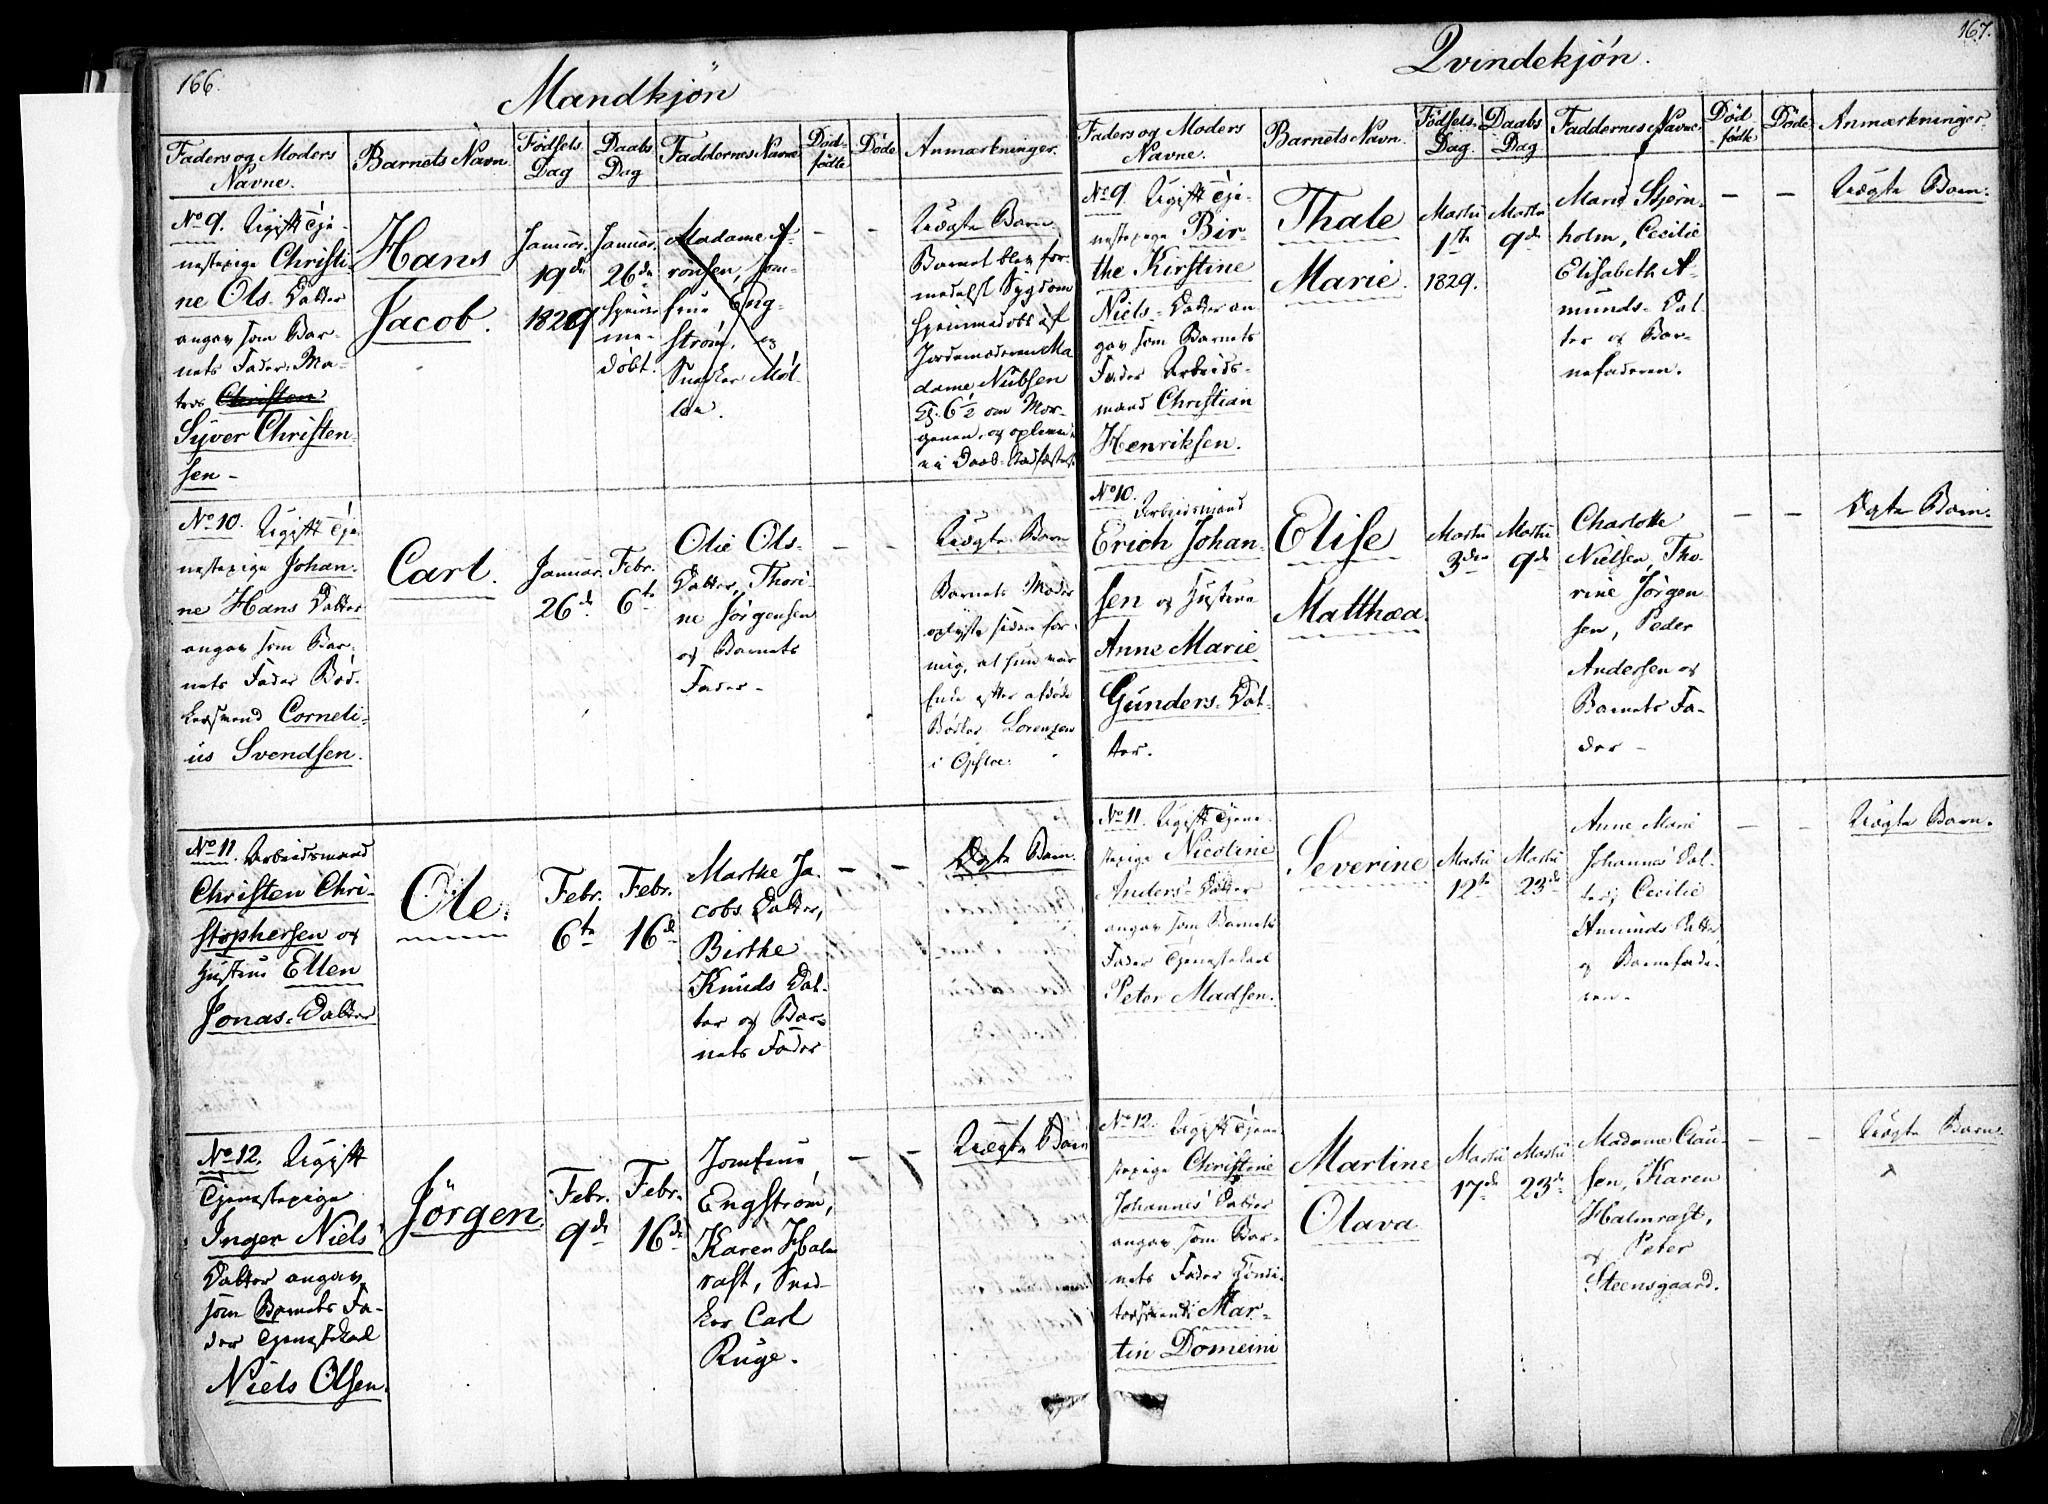 166.
Mandkjön
Faders og Moders
Navne.
Barnets Navn.
Födsels
Dag
Daabs
Dag
Faddernes Navne
Död-
födte
Døde
Anmærkninger.
No 9. Ugift Tje-
nestepige Christi-
ne Ols- Datter
angav som Bar-
nets Fader: Ma-
tros Christen
Syver Christen-
sen -
Hans
Jacob.
Januar.
19de
1829
Januar.
26de
hjemme-
døbt.
Madame A-
ronsen, Jom-
frue Eng-
ström, og
Snedker Møl-
ler.
- -
Uægte Barn.
Barnet blev for-
medelst Sygdom
hjemmedøbt af
Jordemoderen Ma
dame Nübsen
Kl. 6½ om Mor-
genen, og
No 10. Ugift Tje-
nestepige Johan-
ne Hans Datter
angav som Bar-
nets Fader Bød-
kersvend Corneli-
us Svendsen.
Carl.
Januar.
26de
Febr.
6te
Olie Ols-
Datter, Thori-
ne Jörgensen
og Barnets
Fader -
- -
Uægte Barn
Barnets Moder
oplyste siden for
mig, at hun var
Enke efter afdøde
Bødker Lorenzen
i Opsloe.
No 11. Arbeidsmand
Christen Chri-
stophersen og
Hustrue Ellen
Jonas. Datter
Ole.
Febr.
6te
Febr.
16de
Marthe Ja-
cobs Datter,
Birthe
Knuds Dat-
ter og Bar-
nets Fader
- -
Ægte Barn.
No 12. Ugift
Tjenestepige
Inger Niels
Datter angav
som Barnets Fa-
der Tjenestekarl
Niels Olsen.
Jörgen.
Febr.
9de
Febr.
16de
Jomfrue
Engström,
Karen Halm
rast, Sned-
ker Carl
Ruge.
- -
Uægte Barn
167.
Qvindekjön.
Faders og Moders
Navne.
Barnets Navn.
Födsels.
Dag.
Daabs
Dag
Faddernes Navne.
Död
-födte
Døde
Anmærkninger.
No 9. Ugift Tje-
nestepige Bir-
the Kirstine
Niels- Datter an-
gav som Barnets
Fader Arbeids-
mand Christian
Henriksen.
Thale
Marie.
Martii
1ste
1829.
Martii
9de
Maria Stjern-
holm, Cecilie
Elisabeth A-
munds- Dat
ter og Bar-
nefaderen.
- -
Uægte Barn.
No 10.
Arbeidsmand
Erich Johan-
sen og Hustrue
Anne Marie
Gunders- Dat-
ter.
Elise
Matthæa.
Martii
3die
Martii
9de
Charlotte
Nielsen, Tho-
rine Jörgen
sen, Peder
Andersen og
Barnets Fa-
der -
- -
Ægte Barn.
No 11. Ugift Tjene-
stepige Nicoline
Anders- Datter
angav som Barnets
Fader Tjenestekarl
Peter Madsen.
Severine
Martii
12te
Martii
23de
Anne Marie
Johannes' Dat-
ter, Cecilie
Amunds Datter
og Barnefade-
ren -
- -
Uægte Barn.
No 12. Ugift Tjene-
stepige Christine
Johannes' Datter
angav som Bar-
nets Fader Condi-
torsvend Mar-
tin Domeini
Martine
Olava
Martii
17de
Martii
23de
Madame Clau-
sen, Karen
Halmrast,
og Peter
Steensgaard.
- -
Uægte Barn.